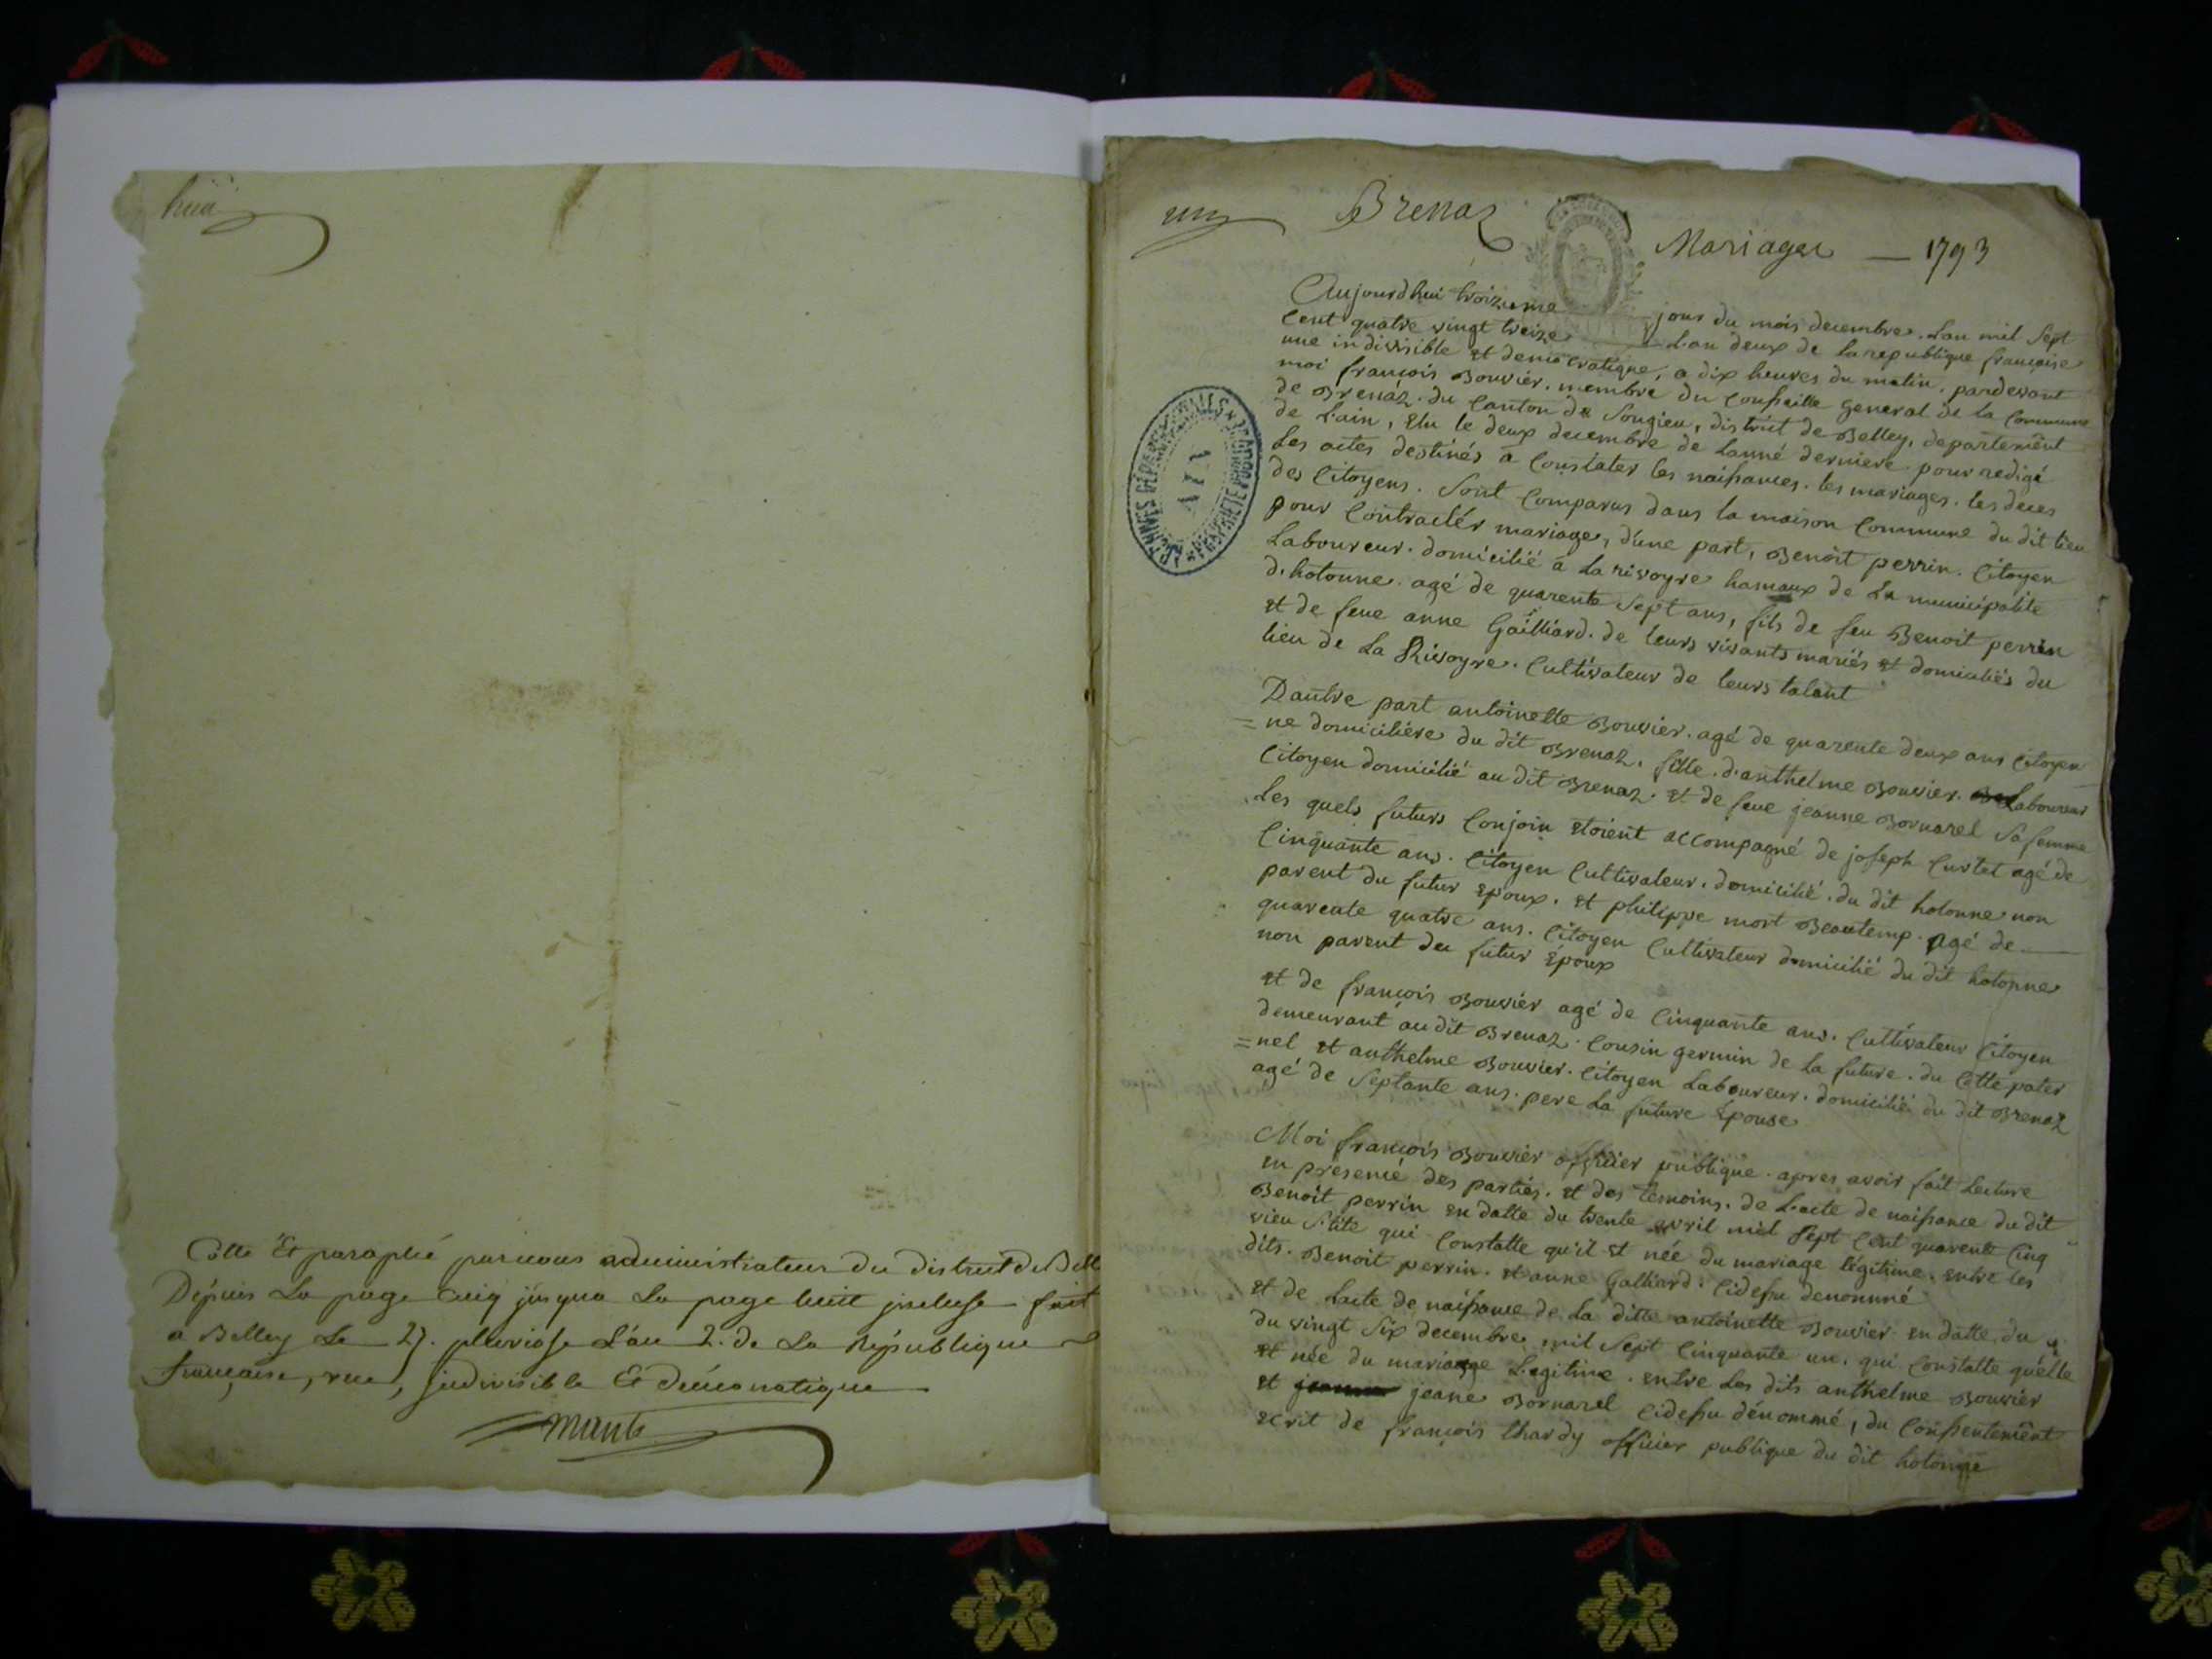 huit
Cotté Et paraphé par nous administrateur du district de Bell
Dépuis La page cinq jusqua La page huit jncluse fait
a Belley Le 27. pluviose L'an 2. de La République
française, une, jndivisible Et démocratique
un
Brenaz
Mariages — 1793
ARCHIVES DÉPARTEMENTALES
AIN
PROPRIÉTÉ PUBLIQUE
Aujourdhui troizieme jour du mois decembre. Lan mil Sept
Cent quatre vingt treize L'an deux de la republique française
une indivisible et democratique, a dix heures du matin. pardevant
moi françois Bouvier. membre du Conseille general de la Commune
de Brenáz. du Canton de Songieu, district de Belley, departemênt
de Lain, Elu le deux decembre de Lanné derniere pour redigé
Les actes destinés a Constater les naissances. les mariages. les deces
des Citoyens. Sont Comparus dans la maison Commune du dit lieu
pour Contractér mariage, d'une part, Benoit perrin. Citoyen
Laboureur. domicilié a La rivoyre hamaux de La municipalite
d.hotonne. agé de quarente Sept ans, fils de feu Benoit perrin
et de feue anne Gailliard. de leurs vivants mariés et domiciliés du
lieu de La Rivoyre. Cultivateur de leurs talant
Dautre part antoinette Bouvier. agé de quarente deux ans Citoyen
=ne domiciliére du dit Brenaz. fille. d'anthelme Bouvier. Laboureur
Citoyen domicilié au dit Brenaz. et de feue jeanne Bornarel Sa femme
Les quels futurs Conjoin etoient accompagné de joseph Curtet agé de
Cinquante ans. Citoyen Cultivateur. domicilié. du dit hotonne non
parent du futur Epoux. et philippe mort Beautemp. agé de
quarente quatre ans. Citoyen Cultivateur domicilié du dit hotonne
non parent du futur Époux
et de françois Bouvier agé de Cinquante ans. Cultivateur Citoyen
demeurant au dit Brenaz. Cousin germin de La future. du Cotté pater
=nel et anthelme Bouvier. Citoyen Laboureur. domicilié du dit Brenaz
agé de Septante ans. pere La future Épouse
Moi françois Bouvier officier publique. apres avoir fait Lecture
en présence des parties. et des temoins. de L'acte de naissance du dit
Benoit perrin en datte du trente avril mil Sept Cent quarente Cinq
vieu Stile qui Constatte qu'il et née du mariage légitime. entre les
dits. Benoit perrin. et anne Galliard. Cidessu denommé
et de Lacte de naissance de La ditte antoinette Bouvier en datte du
du vingt Six decembre mil Sept Cinquante un, qui Constatte qu'elle
et née du mariage Legitime. entre Les dits anthelme Bouvier
et jeane Bornarel Cidessu dénommé, du Consentemênt
ecrit de françois thardy officier publique du dit hotonne